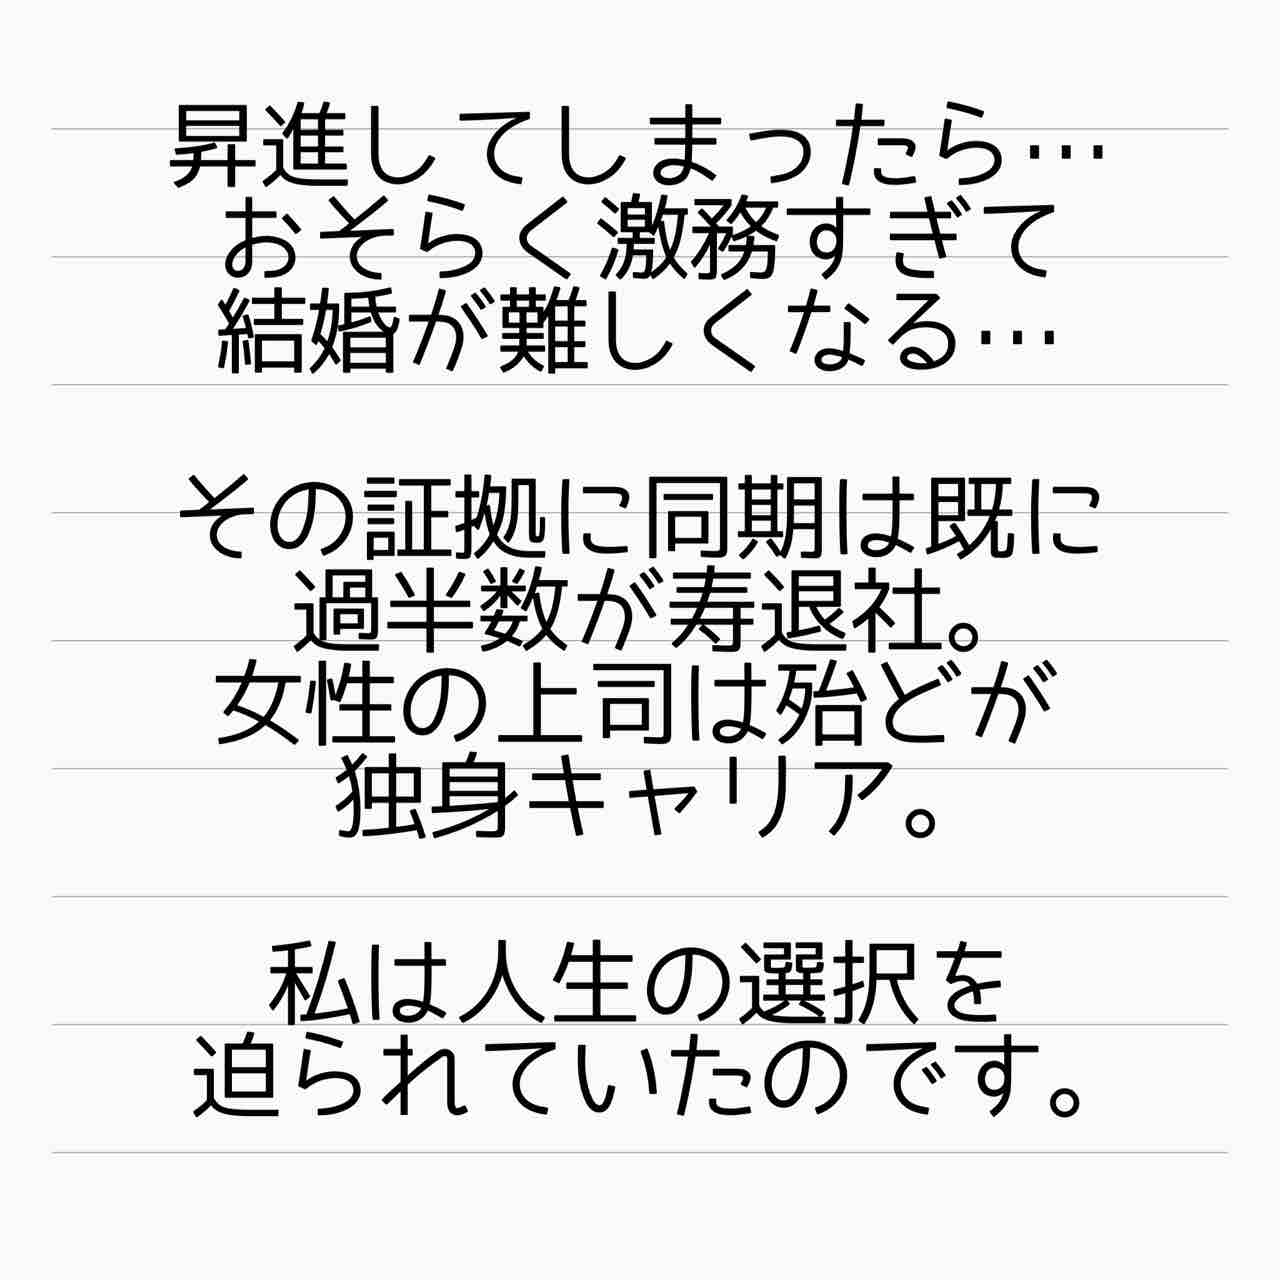 昇進してしまったら…
おそらく激務すぎて
結婚が難しくなる…
その証拠に同期は既に
過半数が寿退社。
女性の上司は殆どが
独身キャリア。
私は人生の選択を
迫られていたのです。